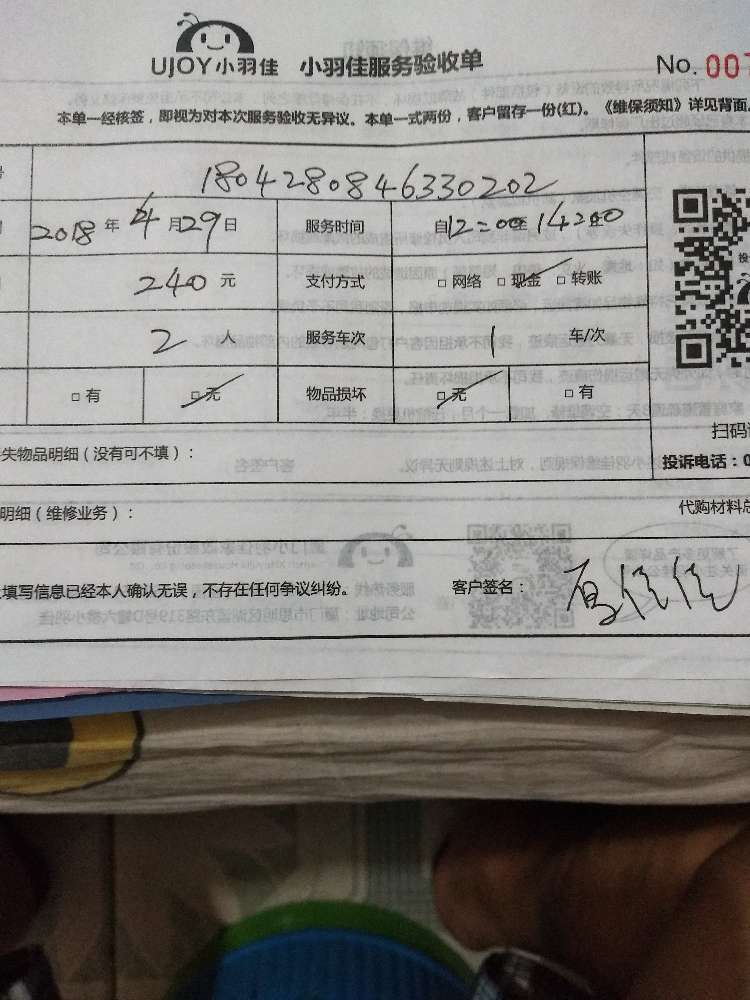 UJOY小羽佳 小羽佳服务验收单 No. 007
本单一经核签，即视为对本次服务验收无异议。本单一式两份，客户留存一份(红)。《维保须知》详见背面。
号 180428084633020​2
2018年4月29日 服务时间 自12:00至14:00
240元 支付方式 □ 网络 □ 现金 □ 转账
2人 服务车次 1 车/次
□ 有 □ 无 物品损坏 □ 无 □ 有
扫码
失物品明细（没有可不填）： 投诉电话：0
明细（维修业务）： 代购材料总
填写信息已经本人确认无误，不存在任何争议纠纷。 客户签名：